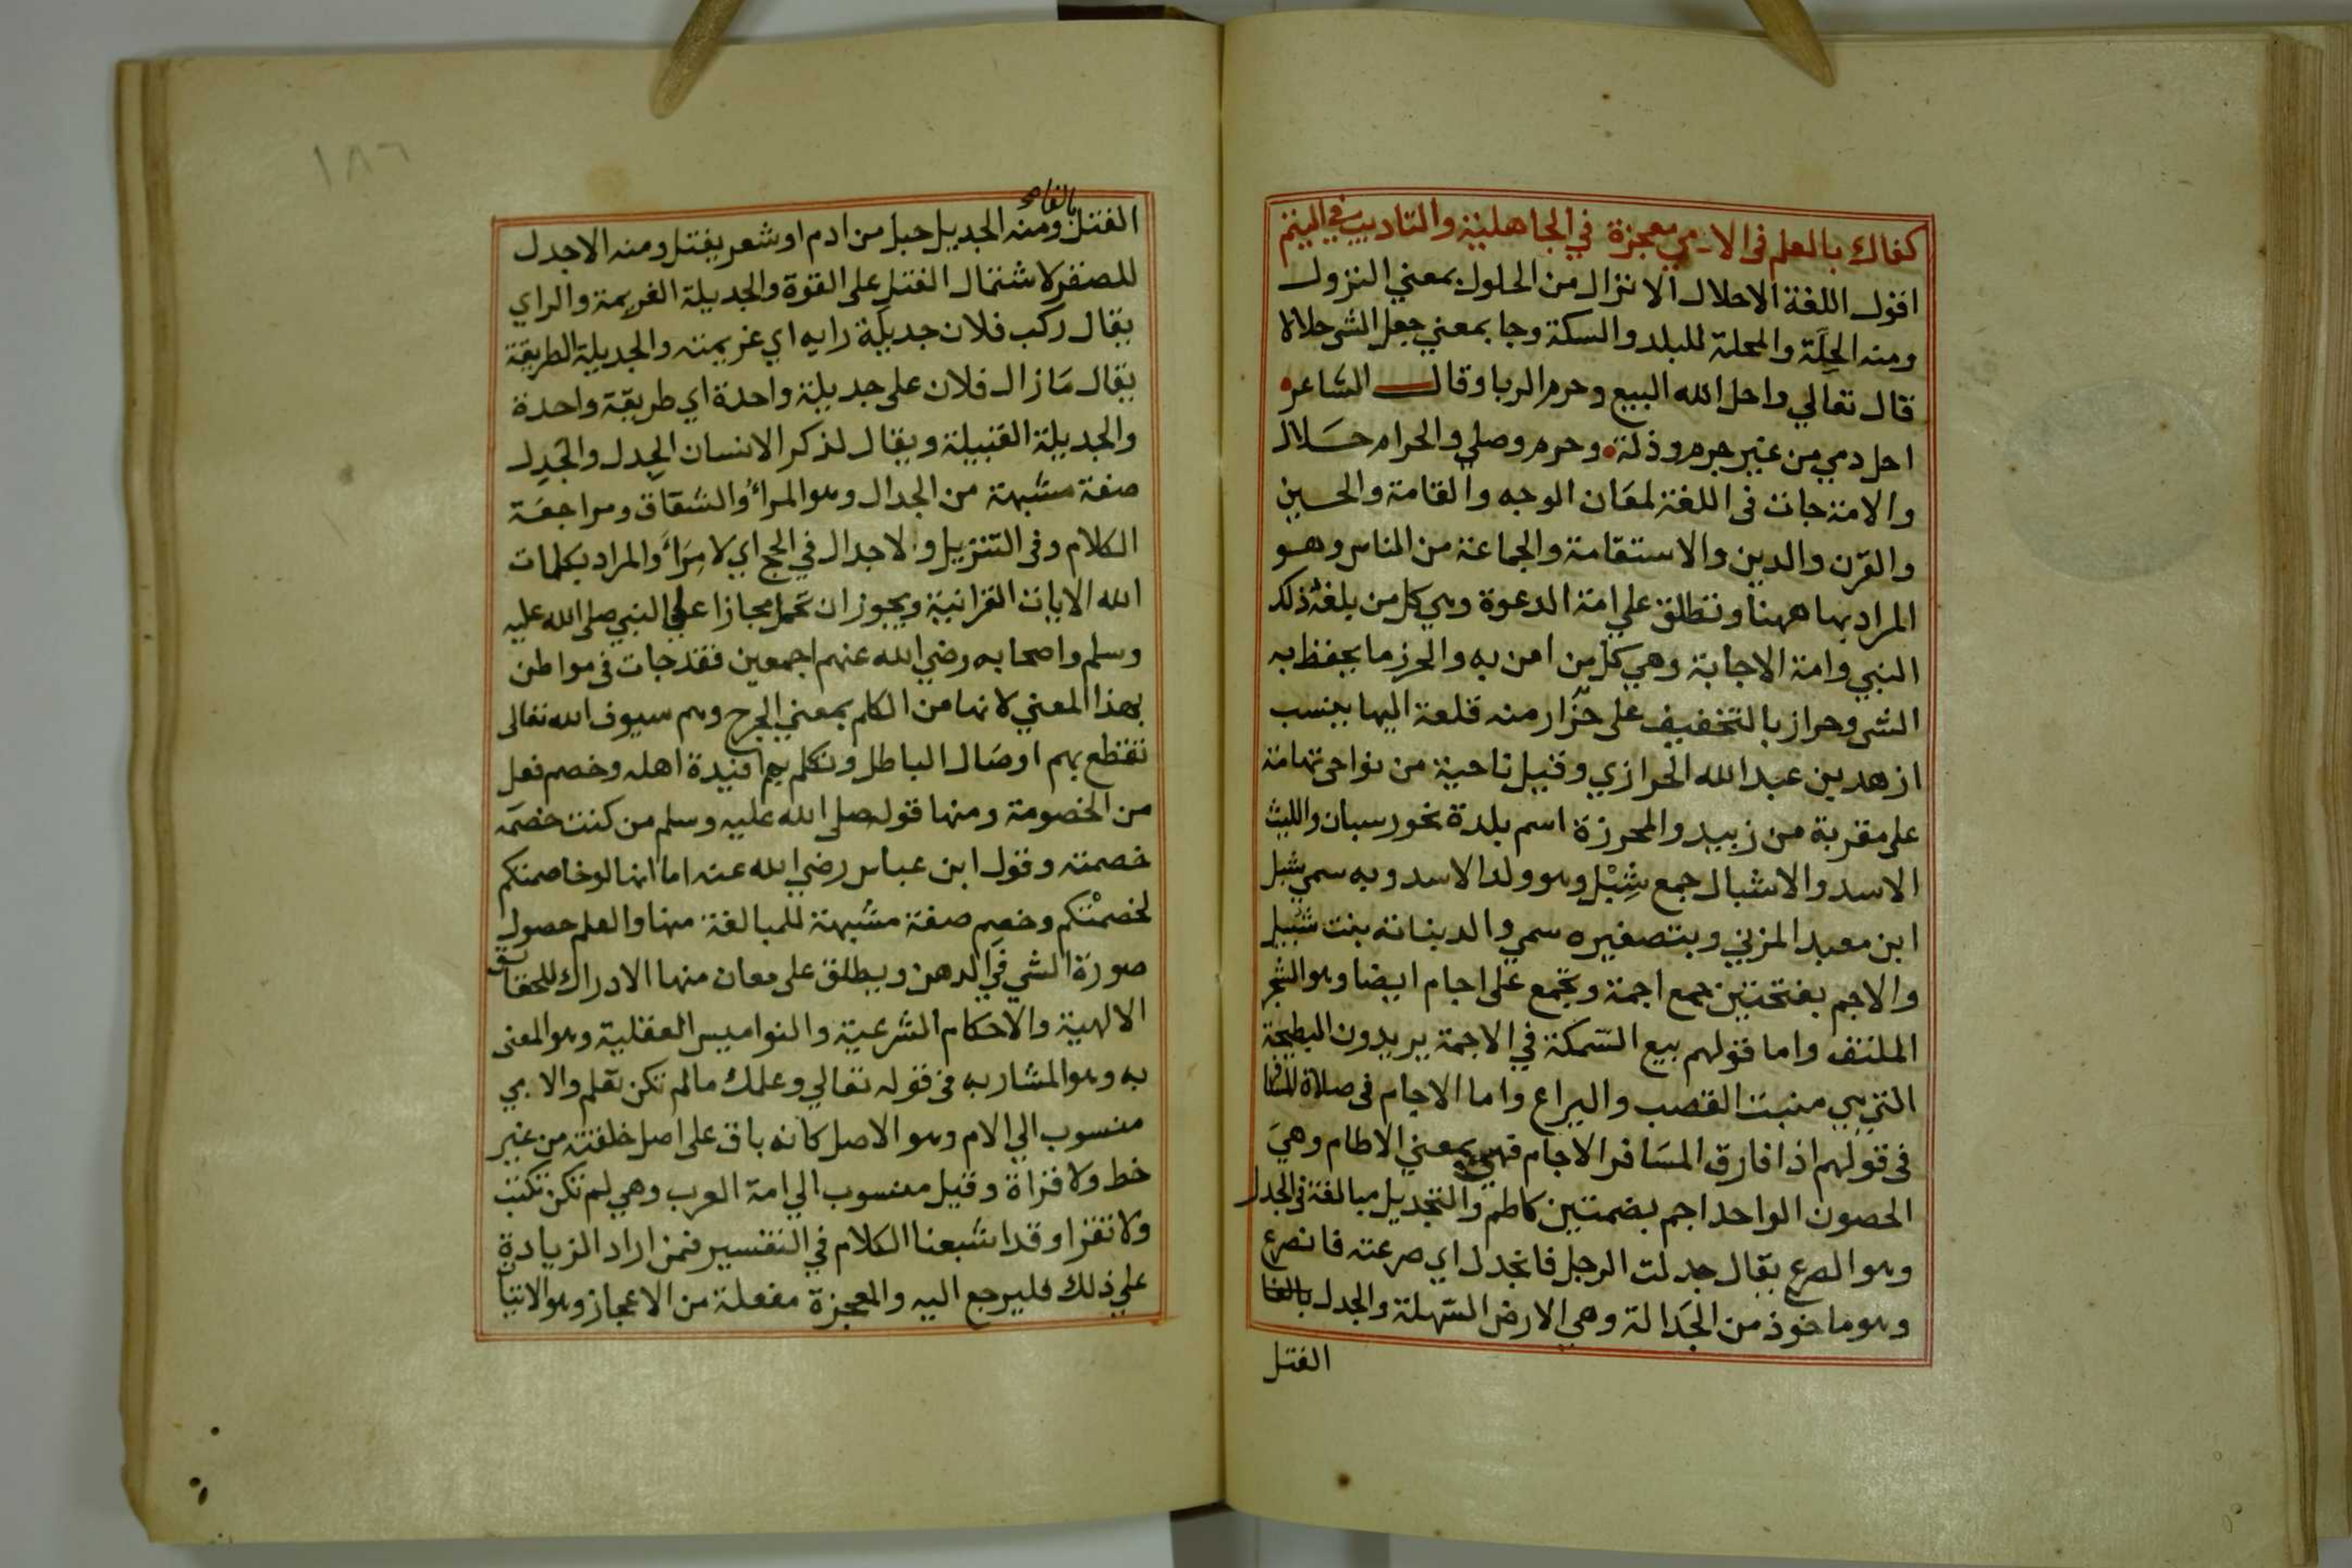 كفاك بالعلم في الامي معجزة في الجاهلية والتاديب في اليتم
اقول اللغة الاحلال الانزال من الحلول بمعني النزول
ومنه الحِلَة والمحلة للبلد والسكة وجا بمعني جعل الشي حلالا
قال تعالي واحل الله البيع وحرم الربا وقال الشاعر
احل دمي من غير جرم وذلة وحرم وصلي والحرام حَلال
والامة جات في اللغة لمعَان الوجه والقامة والحسين
والقرن والدين والاستقامة والجماعة من الناس وهو
المراد بها ههنا وتطلق علي امة الدعوة وهي كل من بلغه ذلك
النبي وامة الاجابة وهي كل من امن به والحرز ما يحفظ به
الشي وحراز بالتخفيف على حزّار منه قلعة اليها ينسب
ازهد بن عبد الله الحرازي وقيل ناحية من نواحي تهامة
على مقربة من زبيد والمحرزة اسم بلدة بخورسبان والليث
الاسد والاشبال جمع شِبْل وهو ولد الاسد وبه سمي شبل
ابن معبد المزني وبتصغيره سمي والد بنانة بنت شبيل
والاجم بفتحتين جمع اجمة ويجمع على اجام ايضا وهو الشجر
الملتف واما قولهم بيع السّمكة في الاجمة يريدون البطيحة
التي هي منبت القصب واليراع واما الاجام في صلاة المسافر
في قولهم اذا فارق المسَافر الاجام فهي بمعني الاطام وهيَ
الحصون الواحد اجم بضمتين كاطم والتجديل مبالغة في الجدل
وهو الصرع يقال جدلت الرجل فانجدل اي صرعته فانصرع
وهو ماخوذ من الجَدالة وهي الارض السّهلة والجدل بالفا
الفتل
١٨٦
الفتل بالفا ومنه الجديل حبل من ادم او شعر يفتل ومنه الاجدل
للصقر لاشتمال الفتل على القوة والجديلة الغريمة والراي
يقال ركب فلان جديلة رايه اي عزيمته والجديلة الطريقة
يقال مَازال فلان على جديلة واحدة اي طريقة واحدة
والجديلة القبيلة ويقال لذكر الانسان الجِدل والجَدِل
صفة مشبهة من الجدال وهو المراءُ والشقاق ومراجعَة
الكلام وفي التنزيل ولا جدال في الحج اي لا مِرَاءَ والمراد بكلمات
الله الايات القرانية ويجوز ان تحمل مجازا علي النبي صلى الله عليه
وسلم واصحابه رضي الله عنهم اجمعين فقد جات في مواطن
بهذا المعني لانها من الكلم بمعني الجرح وهم سيوف الله تعالى
تقطع بهم اوصَال الباطل وتكلم بهم افئدة اهله وخصم فعل
من الخصومة ومنها قوله صلى الله عليه وسلم من كنت خصمَه
خصمته وقول ابن عباس رضي الله عنه اما انها لو خاصمتكم
لخصمْتكم وخصِم صفة مشبهة للمبالغة منها والعلم حصول
صورَة الشي في الدهن ويطلق على معان منها الادراك للحقائق
الالهية والاحكام الشرعية والنواميس العقلية وهو المعنى
به وهو المشار به في قوله تعالي وعلمك مالم تكن تعلم والامي
منسوب الي الام وهو الاصل كانه باق على اصل خلقته من غير
خط ولا قراة وقيل منسوب الي امة العرب وهي لم تكن تكتب
ولا تقرا وقد اشبعنا الكلام في التفسير فمن اراد الزيادة
علي ذلك فليرجع اليه والمعجزة مفعلة من الاعجاز وهو الاتيان